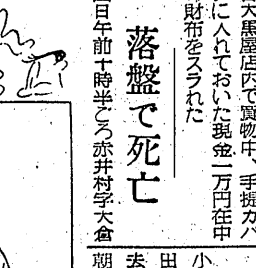 大黒屋店内で買物中、手提カバ
に入れておいた現金一万円在中
財布をスラれた
落盤で死亡
日午前十時半ごろ赤井村字大倉
小
田
夫
朝